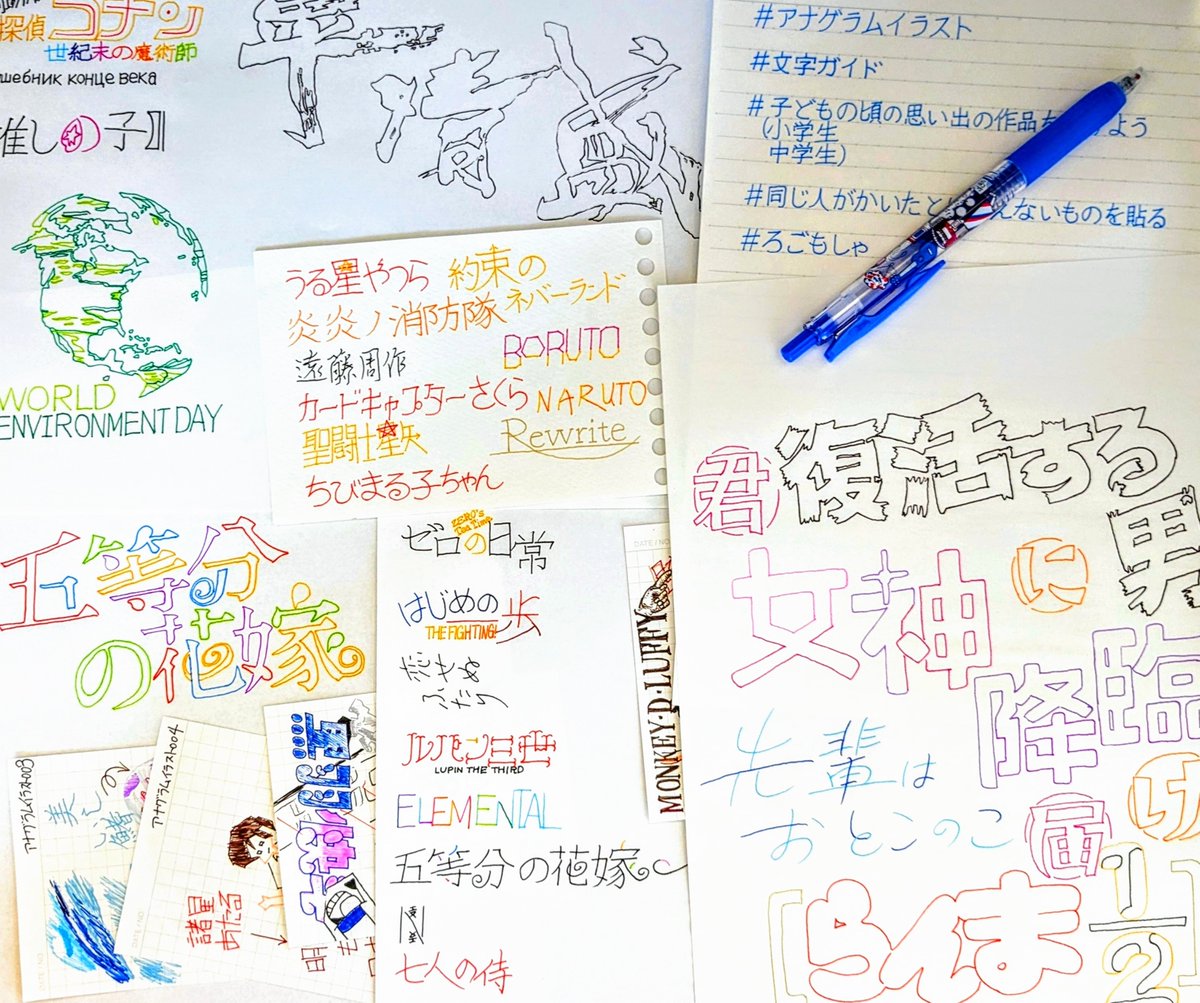 探偵コナン
世紀末の魔術師
шебник конце века
推しの子』
平清盛
WORLD
ENVIRONMENT DAY
#アナグラムイラスト
#文字ガイド
#子どもの頃の思い出の作品を
よう
(小学生
中学生)
#同じ人がかいたと
えないものを貼る
#ろごもしゃ
うる星やつら
約束の
ネバーランド
炎炎ノ消防隊
遠藤周作
BORUTO
カードキャプターさくら
NARUTO
聖闘士星矢
Rewrite
ちびまる子ちゃん
五等分
の花嫁
ZERO's
Tea Time
ゼロの日常
はじめの一歩
THE FIGHTING!
ルパン三世
LUPIN THE THIRD
ELEMENTAL
五等分の花嫁
N
七人の侍
MONKEY・D・LUFFY
君に届け
復活する
男
女神
降臨
先輩は
おとこのこ
らんま
1/2
アナグラムイラスト004
諸星
あたる